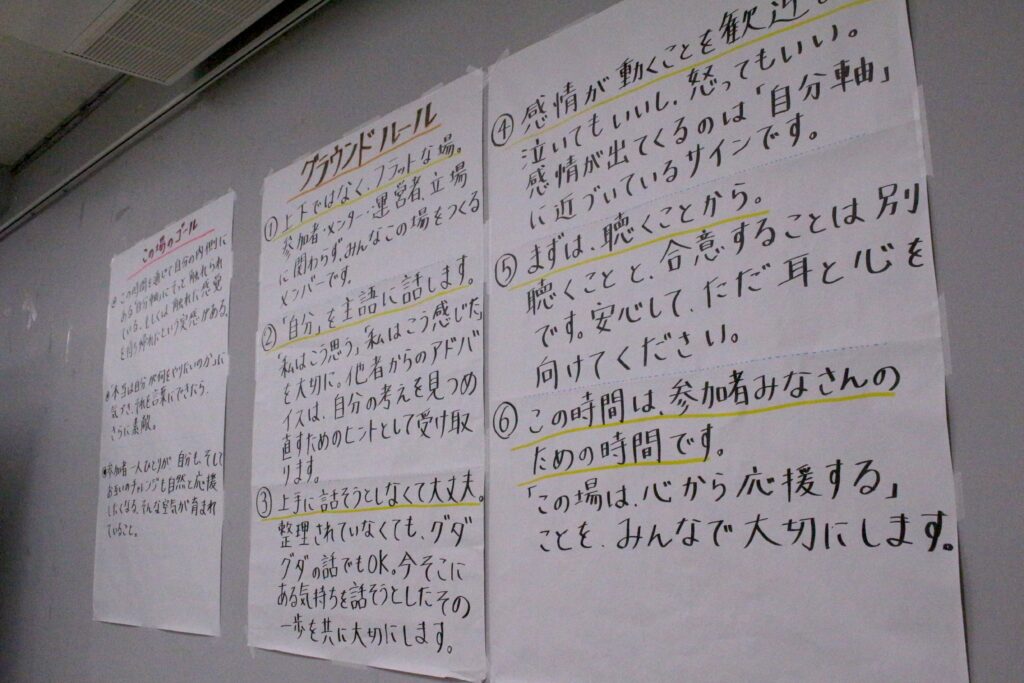 この場のゴール
この時間を通じて自分の内側に
ある「自分軸」にそっと触れられ
ている、もしくは触れた感覚
を持ち帰れたという実感がある。
"本当は自分が何をやりたいのか"に
気づき、それを言葉にできたら、
さらに素敵。
参加者一人ひとりが自分も、そして
お互いのチャレンジも自然と応援
したくなる、そんな空気が育まれ
ていること。
グラウンドルール
① 上下ではなく、フラットな場。
参加者・メンター・運営者、立場
に関わらず、みんなこの場をつくる
メンバーです。
② 「自分」を主語に話します。
「私はこう思う」「私はこう感じた」
を大切に。他者からのアドバ
イスは、自分の考えを見つめ
直すためのヒントとして受け取
ります。
③ 上手に話そうとしなくて大丈夫。
整理されていなくても、グダ
グダの話でもOK。今そこに
ある気持ちを話そうとしたその
一歩を共に大切にします。
④ 感情が動くことを歓迎
泣いてもいいし、怒ってもいい。
感情が出てくるのは「自分軸」
に近づいているサインです。
⑤ まずは、聴くことから。
聴くことと、合意することは別
です。安心して、ただ耳と心を
向けてください。
⑥ この時間は、参加者みなさんの
ための時間です。
「この場は、心から応援する」
ことを、みんなで大切にします。